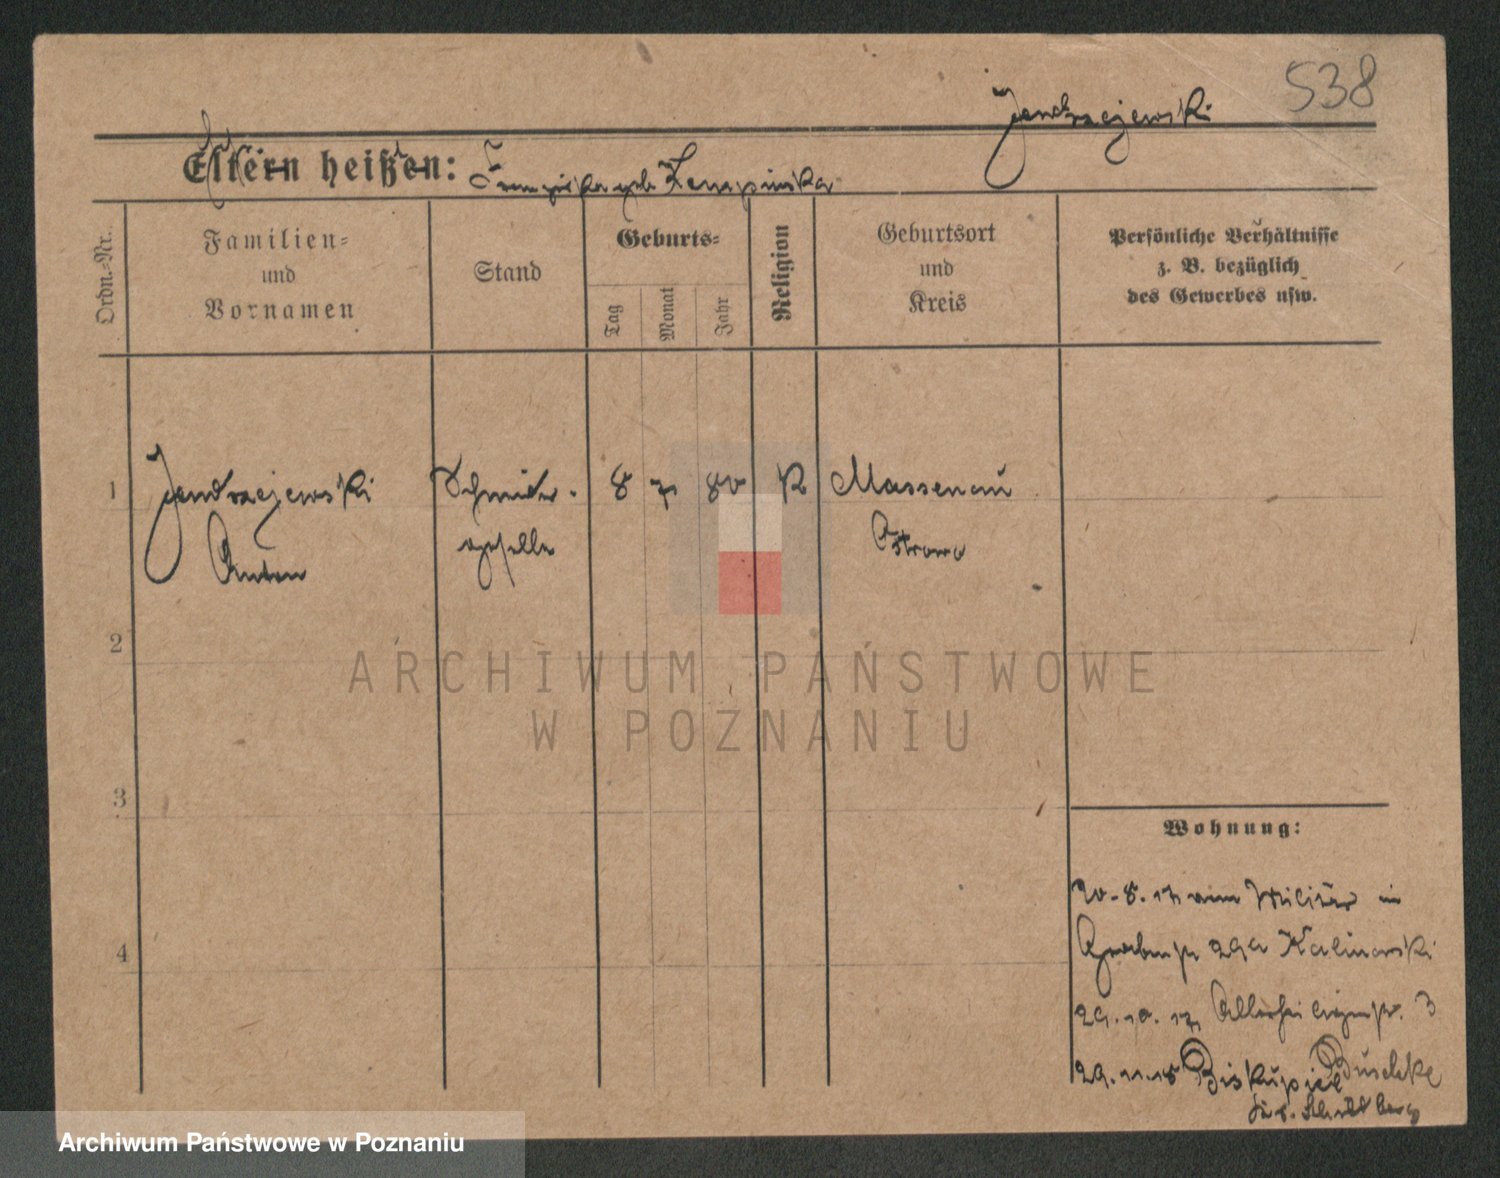 538
Jendrzejewski
Eltern heißen: Franziska geb Kempinska
Ordn.-Nr.
Familien-
und
Vornamen
Stand
Geburts-
Tag
Monat
Jahr
Religion
Geburtsort
und
Kreis
Persönliche Verhältnisse
z. B. bezüglich
des Gewerbes usw.
1 Jendrzejewski Schmiede- 8 80 K Massenau
Anton geselle Ostrowo
2
ARCHIWUM PAŃSTWOWE
W POZNANIU
3
Wohnung:
20.8.17 Militär in
4
Grabenstr 29a Kalinowski
29.10.17 Allerheiligenstr. 3
29.11.18 Biskupice Buschke
Kr. Schildberg
Archiwum Państwowe w Poznaniu